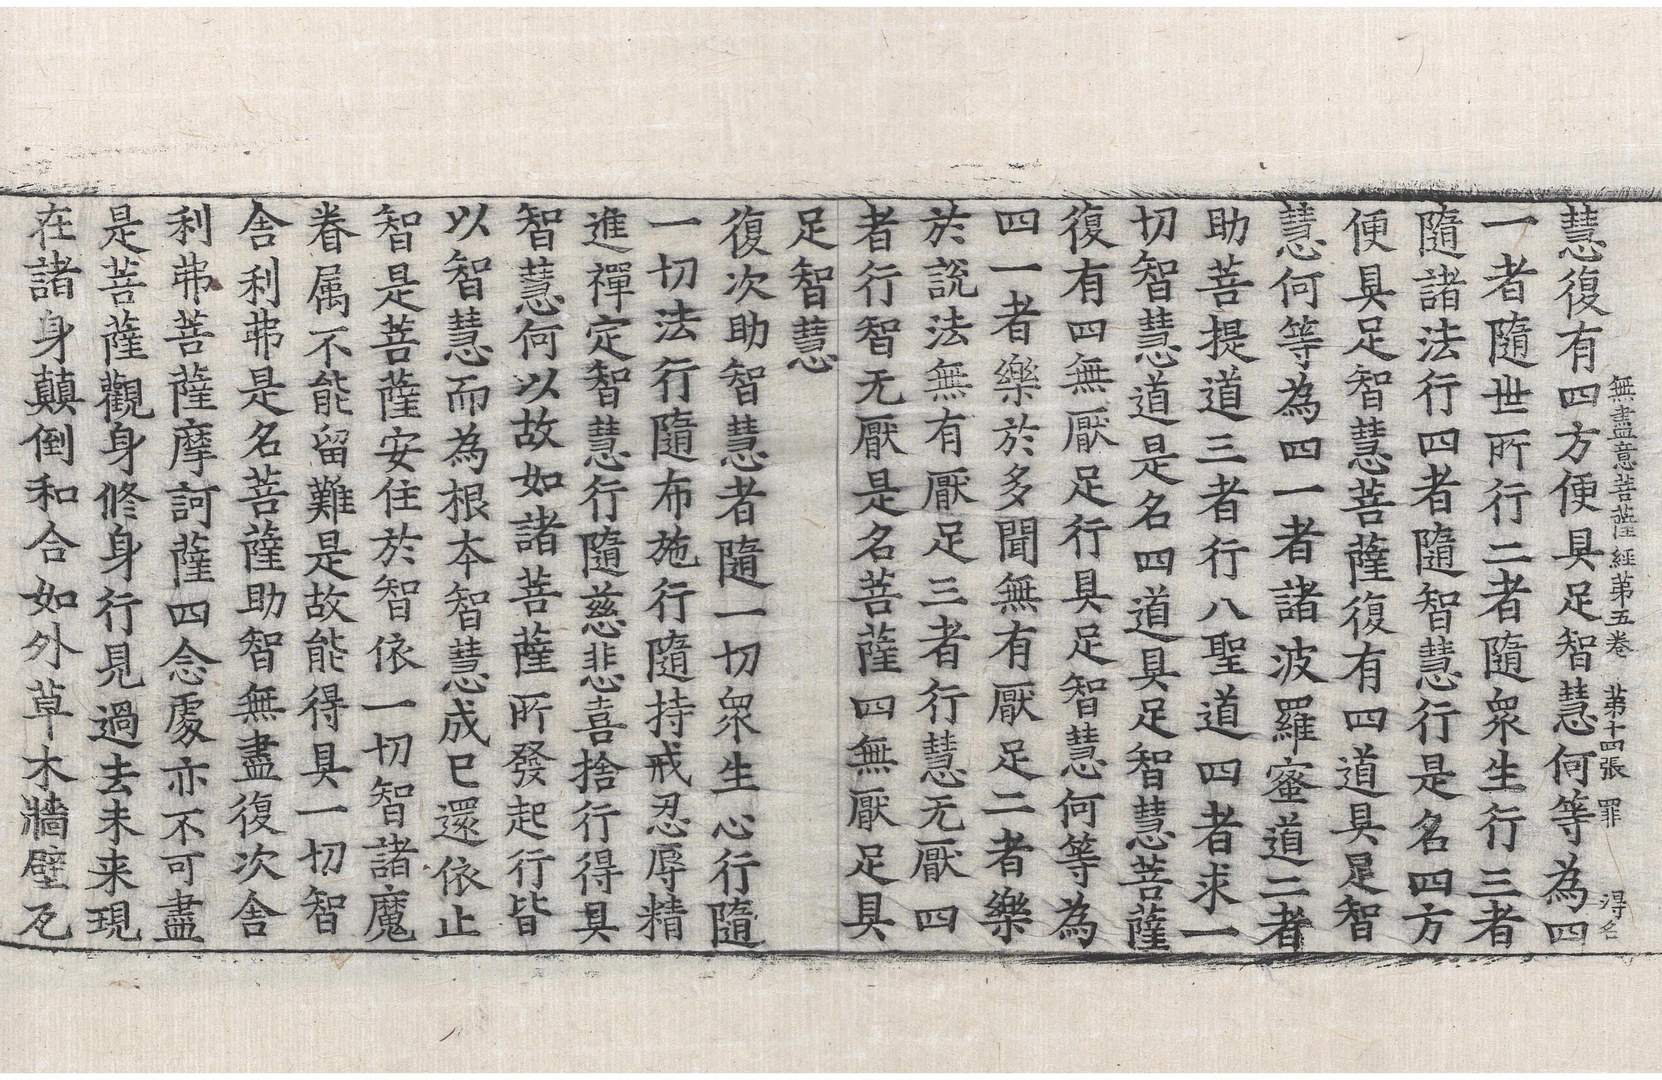 無盡意菩薩経苐五卷 苐十四張 罪 得名
慧復有四方便具足智慧何等為四
一者隨世所行二者隨衆生行三者
隨諸法行四者隨智慧行是名四方
便具足智慧菩薩復有四道具足智
慧何等為四一者諸波羅蜜道二者
助菩提道三者行八聖道四者求一
切智慧道是名四道具足智慧菩薩
復有四無厭足行具足智慧何等為
四一者樂於多聞無有厭足二者樂
於説法無有厭足三者行慧无厭四
者行智无厭是名菩薩四無厭足具
足智慧
復次助智慧者隨一切衆生心行隨
一切法行隨布施行隨持戒忍辱精
進禪定智慧行隨慈悲喜捨行得具
智慧何以故如諸菩薩所發起行皆
以智慧而為根本智慧成已還依止
智是菩薩安住於智依一切智諸魔
眷属不能留難是故能得具一切智
舎利弗是名菩薩助智無盡復次舎
利弗菩薩摩訶薩四念處亦不可盡
是菩薩觀身修身行見過去未来現
在諸身顛倒和合如外草木牆壁瓦